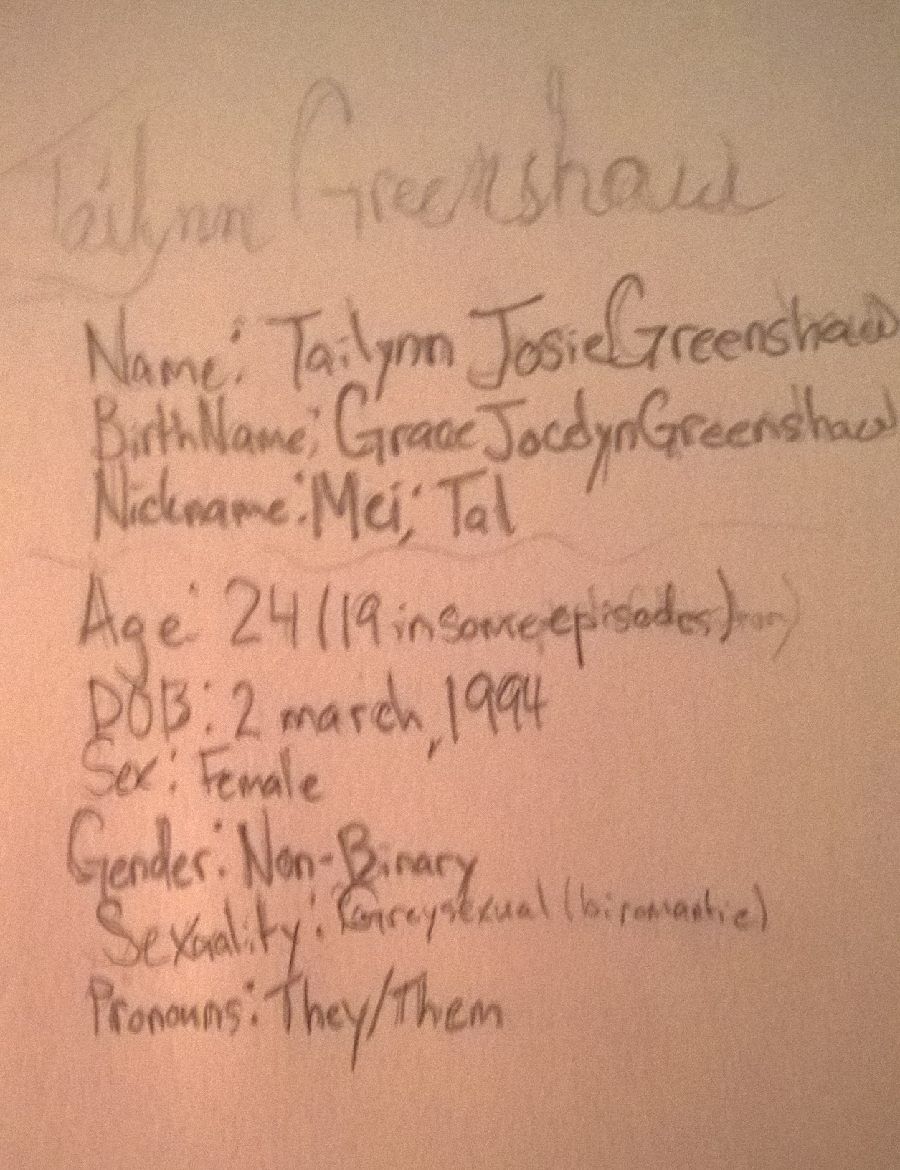 Tailynn Greenshaw
Name: Tailynn Josie Greenshaw
BirthName: Grace Jocelyn Greenshaw
Nickname: Mei; Tal
Age: 24 (19 in some episodes)
DOB: 2 march, 1994
Sex: Female
Gender: Non-Binary
Sexuality: Greysexual (biromantic)
Pronouns: They/Them